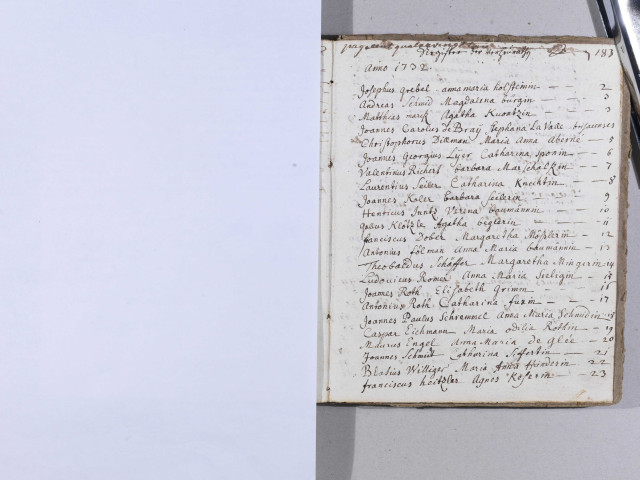 Register der 183
Anno 1732
Josephus grebel annamaria holsteinin — 2
Andreas Schmid Magdalena burgin — 3
Matthias Agatha Kuontzin — 3
Joannes Carolus de Bray Stephana La Vale
Christophorus Dieman Maria Anna Aberlie — 5
Joannes Georgius Lyer Catharina sponin — 6
Valentinus Richert barbara Marschalkin — 7
Laurentius Seiler Catharina Knechtin — 8
Joannes Koler barbara Seilerin — 9
Henricus Juntz Verena baumännin — 10
Klötzle Agatha biglerin — 11
franciscus Dober Margaretha Mößlerin — 12
Antonius fölman Anna Maria baumännin — 13
Theobaldus Schäffer Margaretha Mingerin 14
Ludovicus Romer Anna Maria Seeligin — 15
Joannes Roth Elisabeth grimm — 16
Antonius Roth Catharina fuxin — 17
Joannes Paulus Schremmel Anna Maria Schmidin 18
Caspar Eichmann Maria odilia Röttlin — 19
Maurus Engel Anna Maria de glée — 20
Joannes Schmidt Catharina Seffertin — 21
Blasius Williger Maria Anna Händerin — 22
franciscus heitzler Agnes Koserin — 23